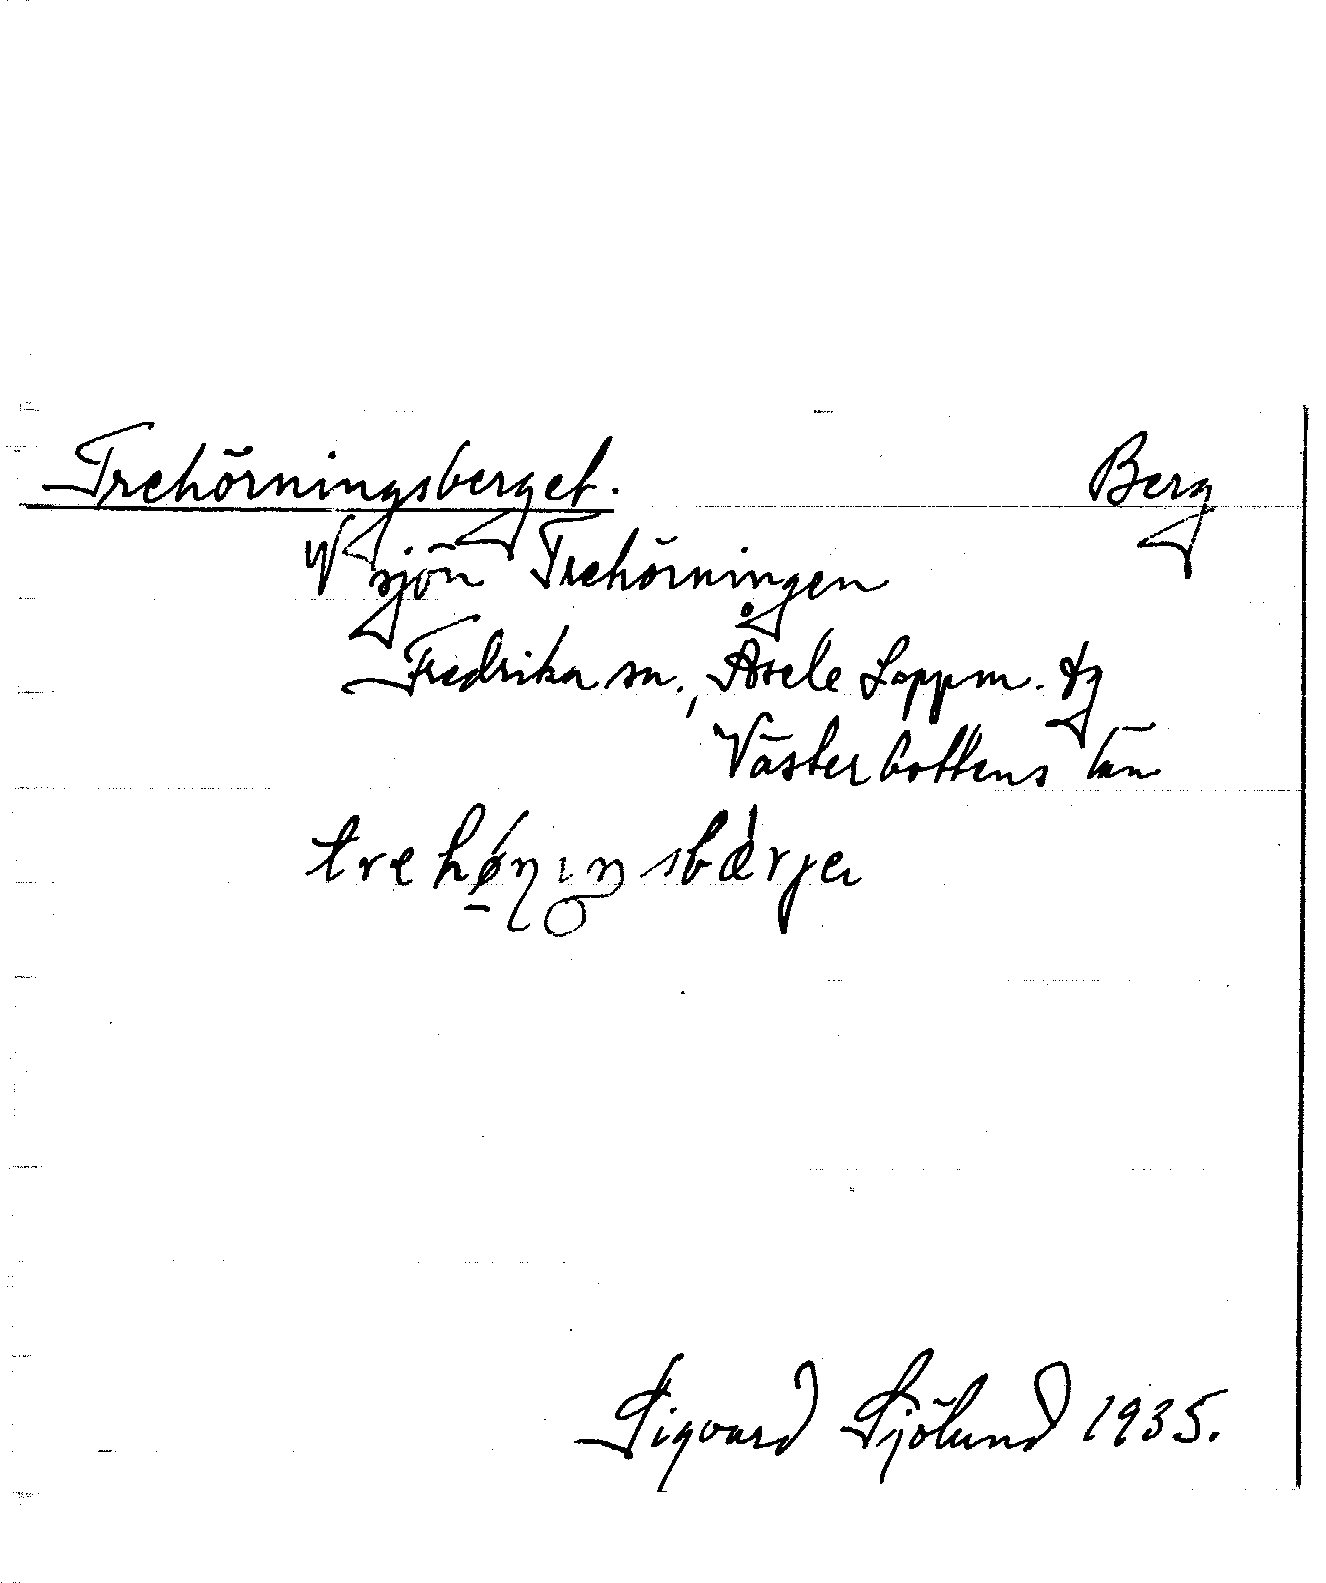 Trehörningsberget. Berg
V sjön Trehörningen
Fredrika sn., Åsele Lappm. tg
Västerbottens län
trehø̱ɳıŋsbæ̀rjɐ
Sigvard Sjölund 1935.